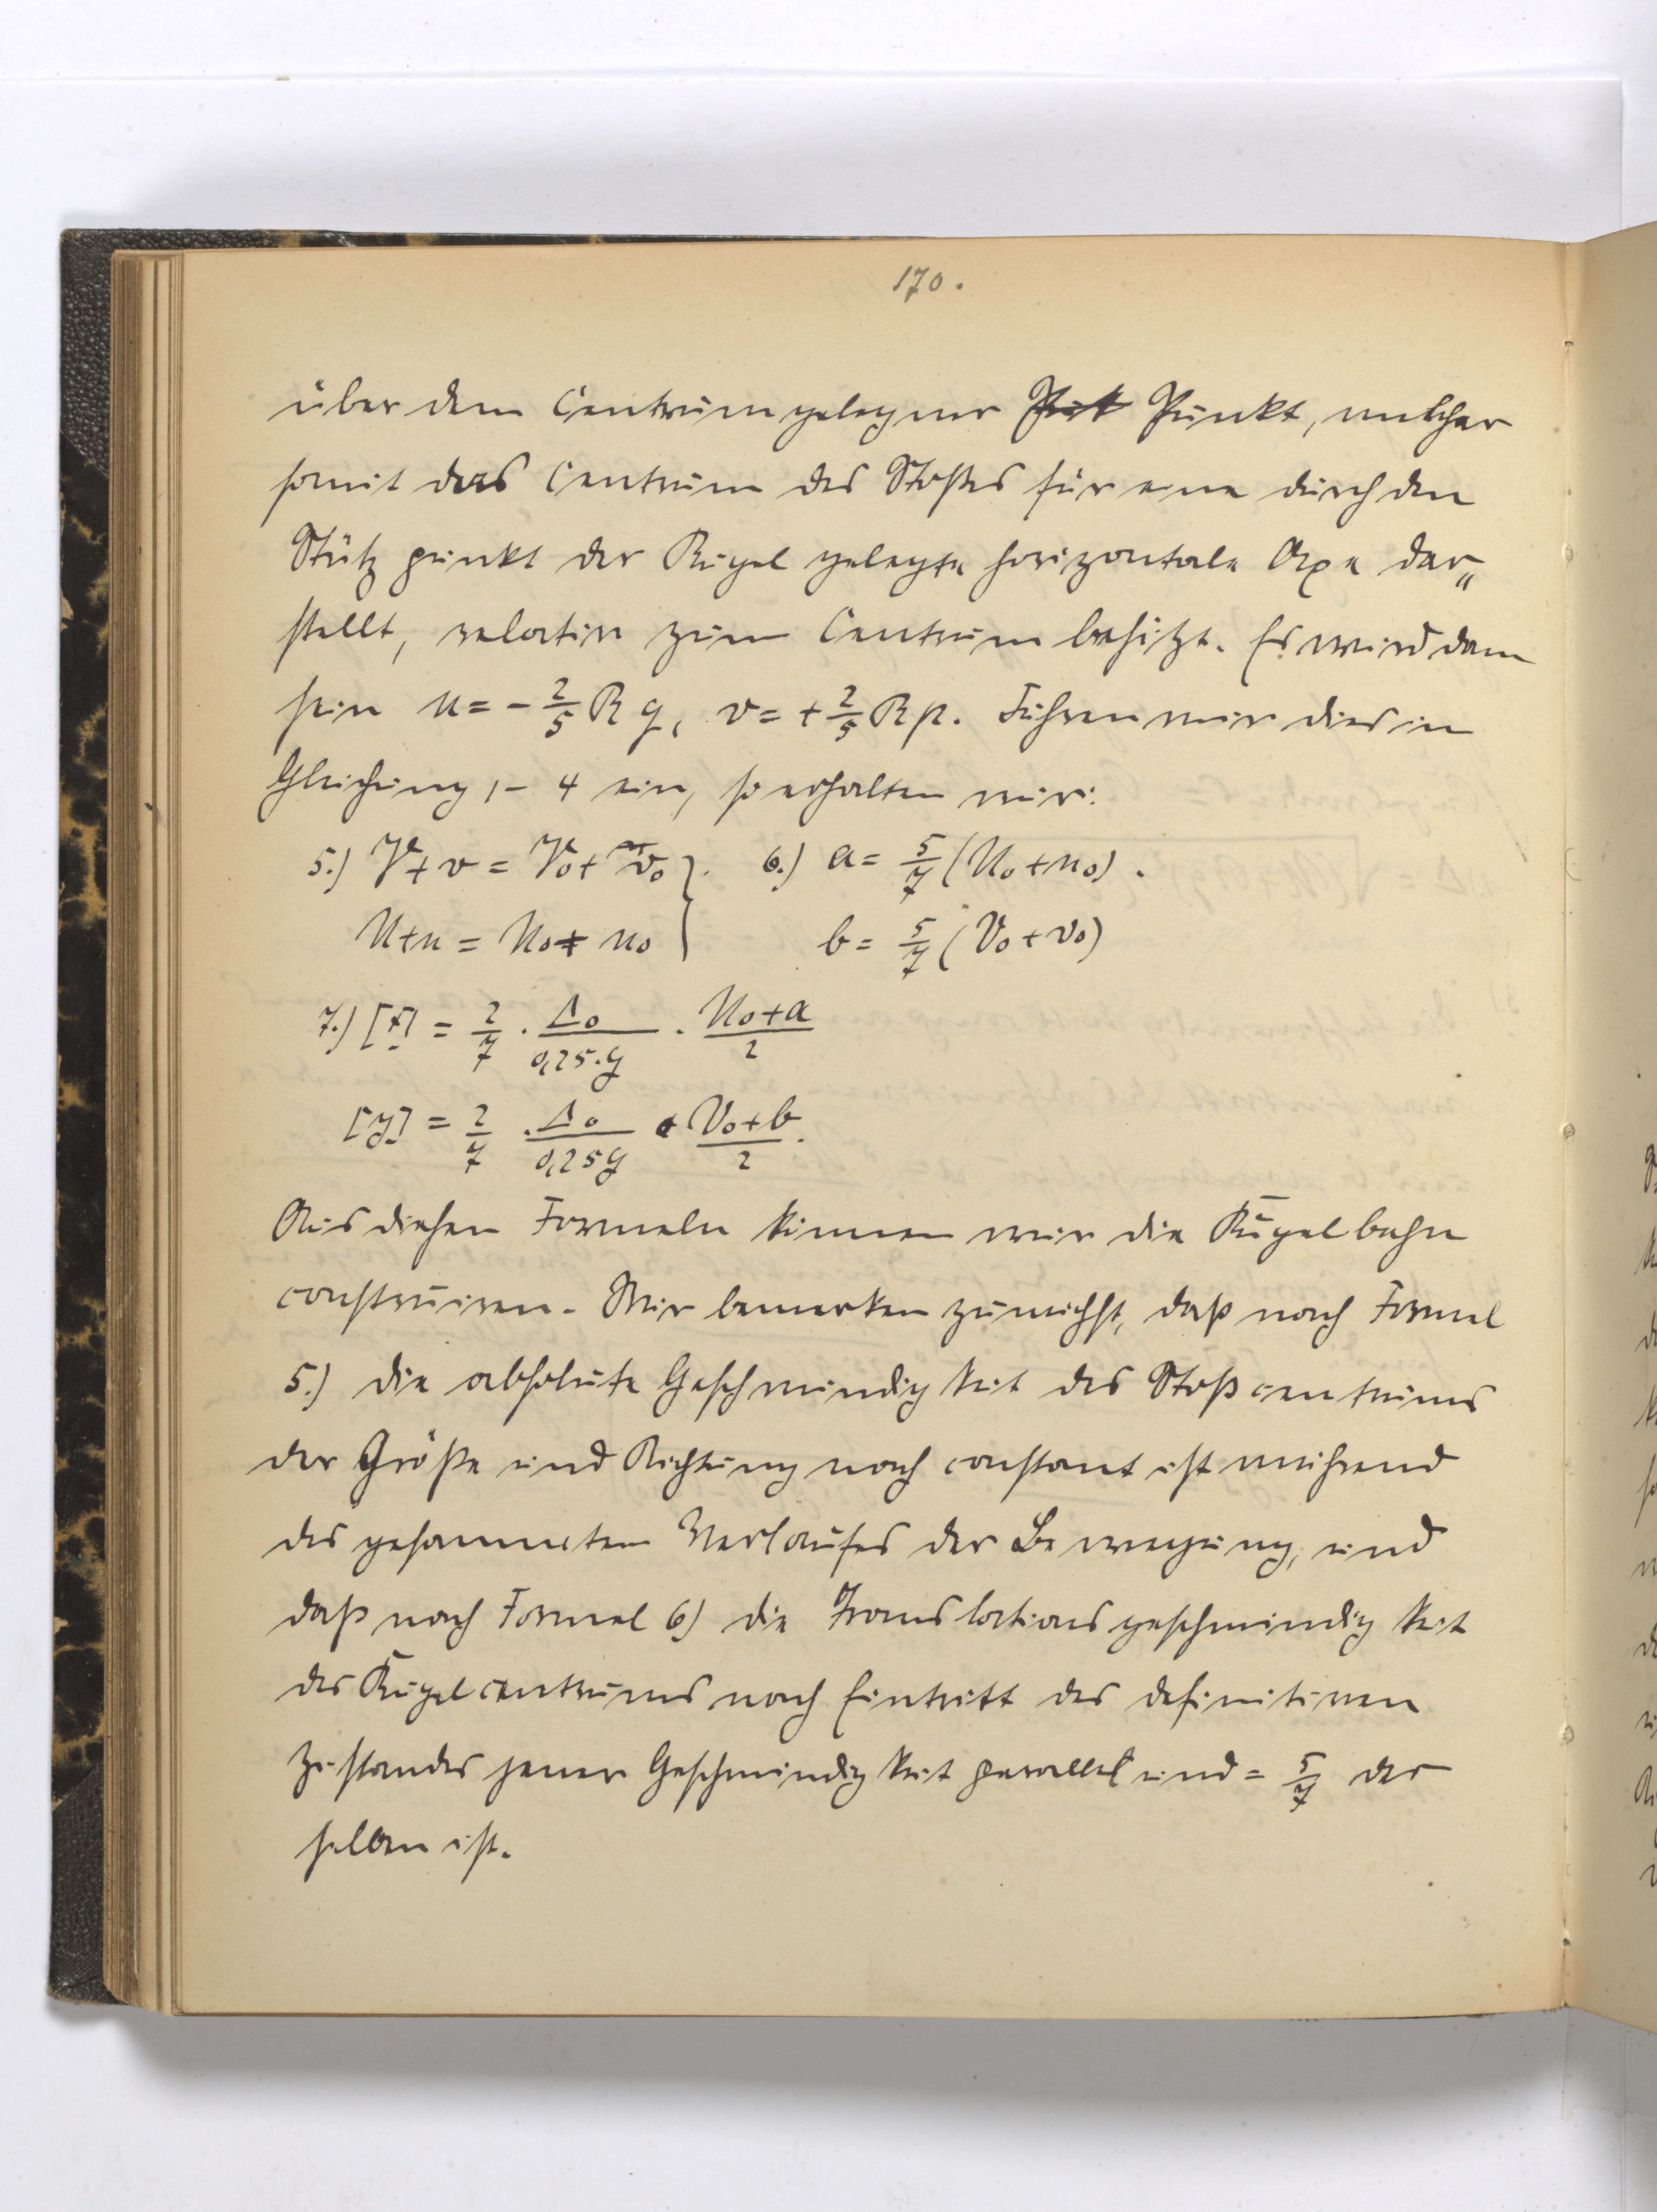 170.
über dem Centrum gelegener P̶u̶k̶t̶ Punkt, welcher
somit das Centrum des Stoßes für eine durch den
Stützpunkt der Kugel gelegte horizontale Axe dar„
stellt, relativ zum Centrum besitzt. Es wird dann
sein u = - 2/5 R q, v = + 2/5 R p. Führen wir dies in
Gleichung 1 - 4 ein, so erhalten wir:
5.) V + v = V₀ + v₀ }. 6.) a = 5/7 (U₀ + u₀).
U + u = U₀ + u₀ } b = 5/7 (V₀ + v₀)
7.) [x] = 2/7 . Δ₀/0,25.g . U₀+a/2
[y] = 2/7 . Δ₀/0,25g . V₀+b/2.
Aus diesen Formeln können wir die Kugelbahn
construiren. Wir bemerken zunächst, daß nach Formel
5.) die absolute Geschwindigkeit des Stoßcentrums
der Größe und Richtung nach constant ist während
des gesammten Verlaufes der Bewegung, und
daß nach Formel 6) die Translationsgeschwindigkeit
des Kugelcentrums nach Eintritt des definitiven
Zustandes jener Geschwindigkeit parallel und = 5/7 der
selben ist.